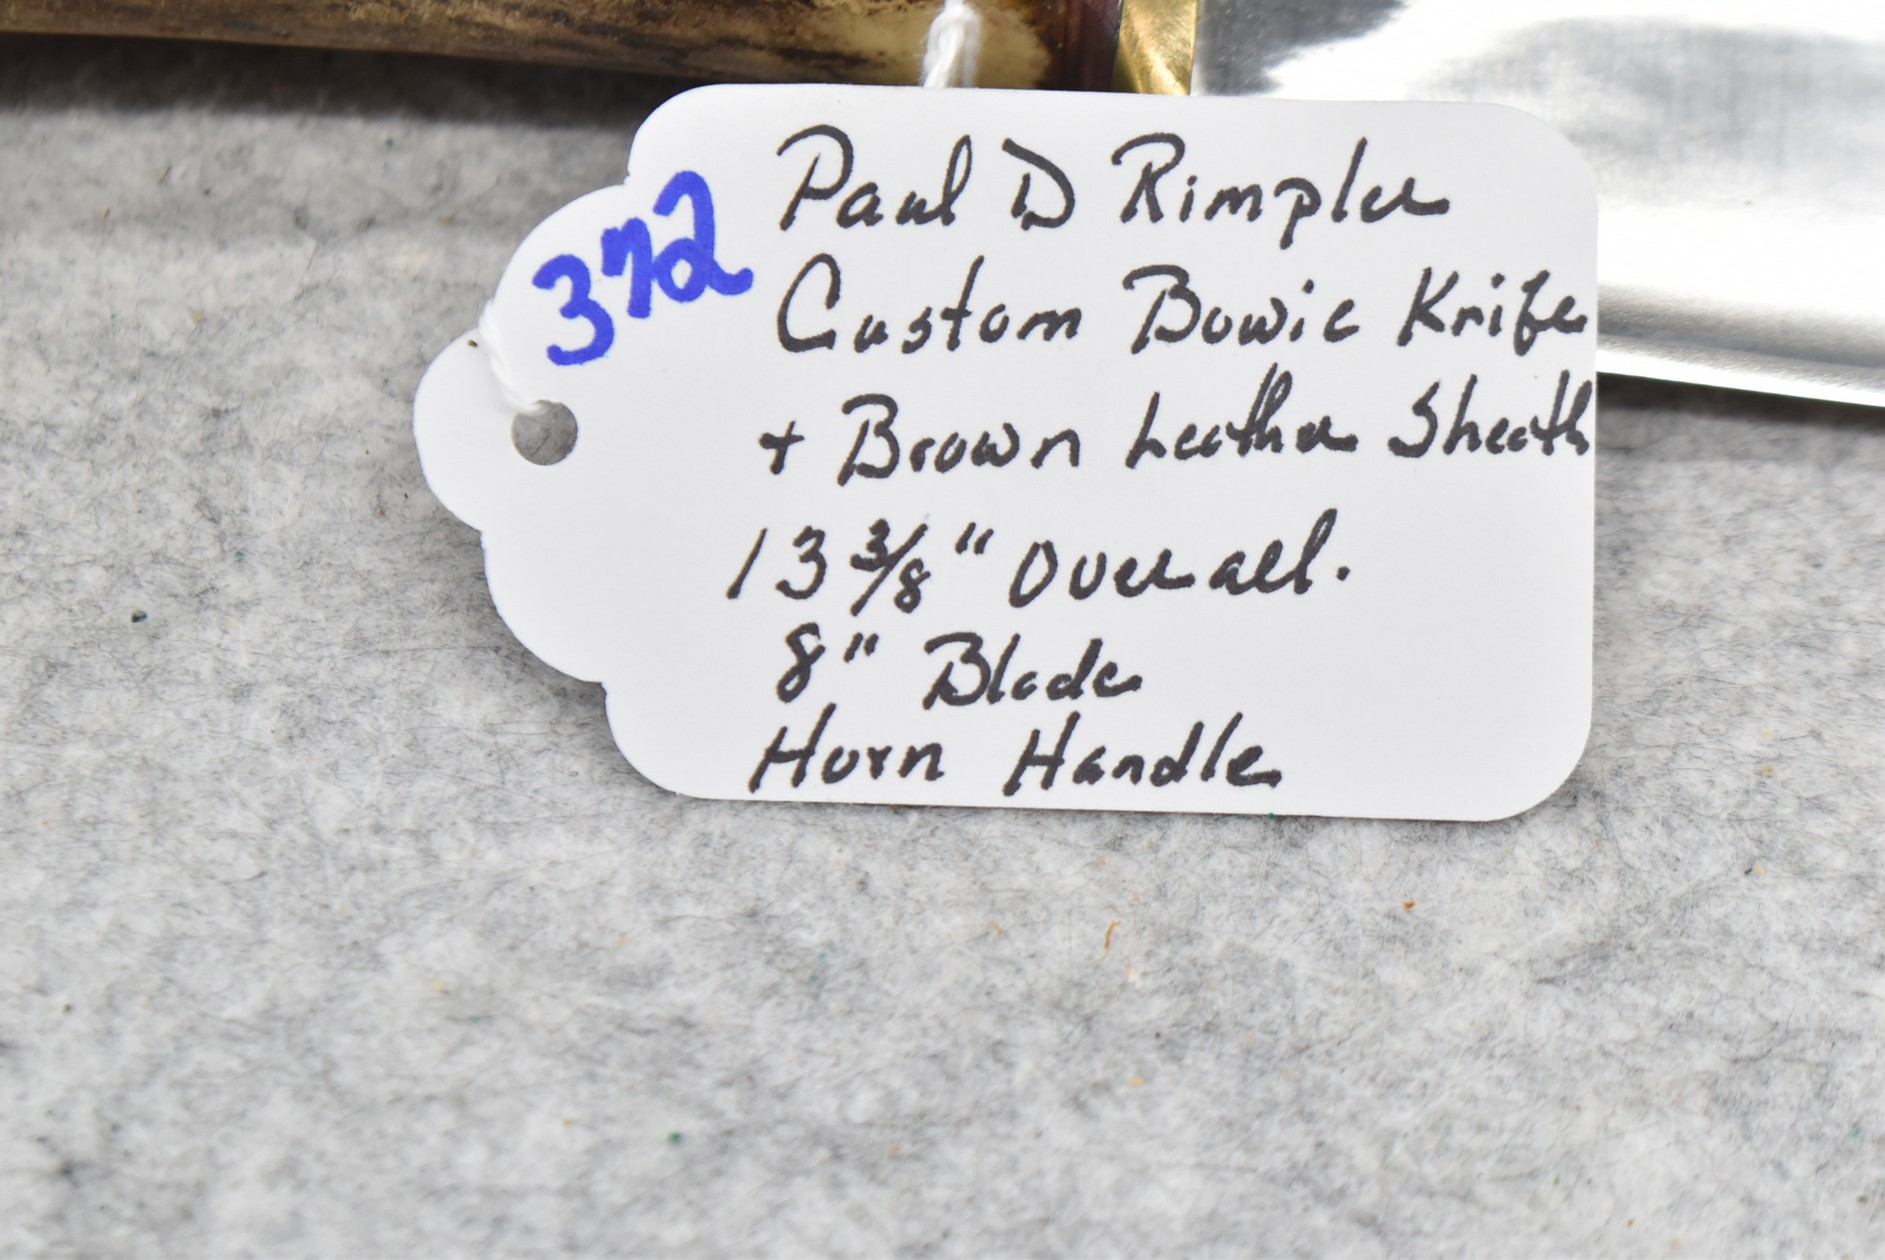 372
Paul D Rimpler
Custom Bowie Knife
+ Brown Leather Sheath
13 3/8" Overall.
8" Blade
Horn Handle